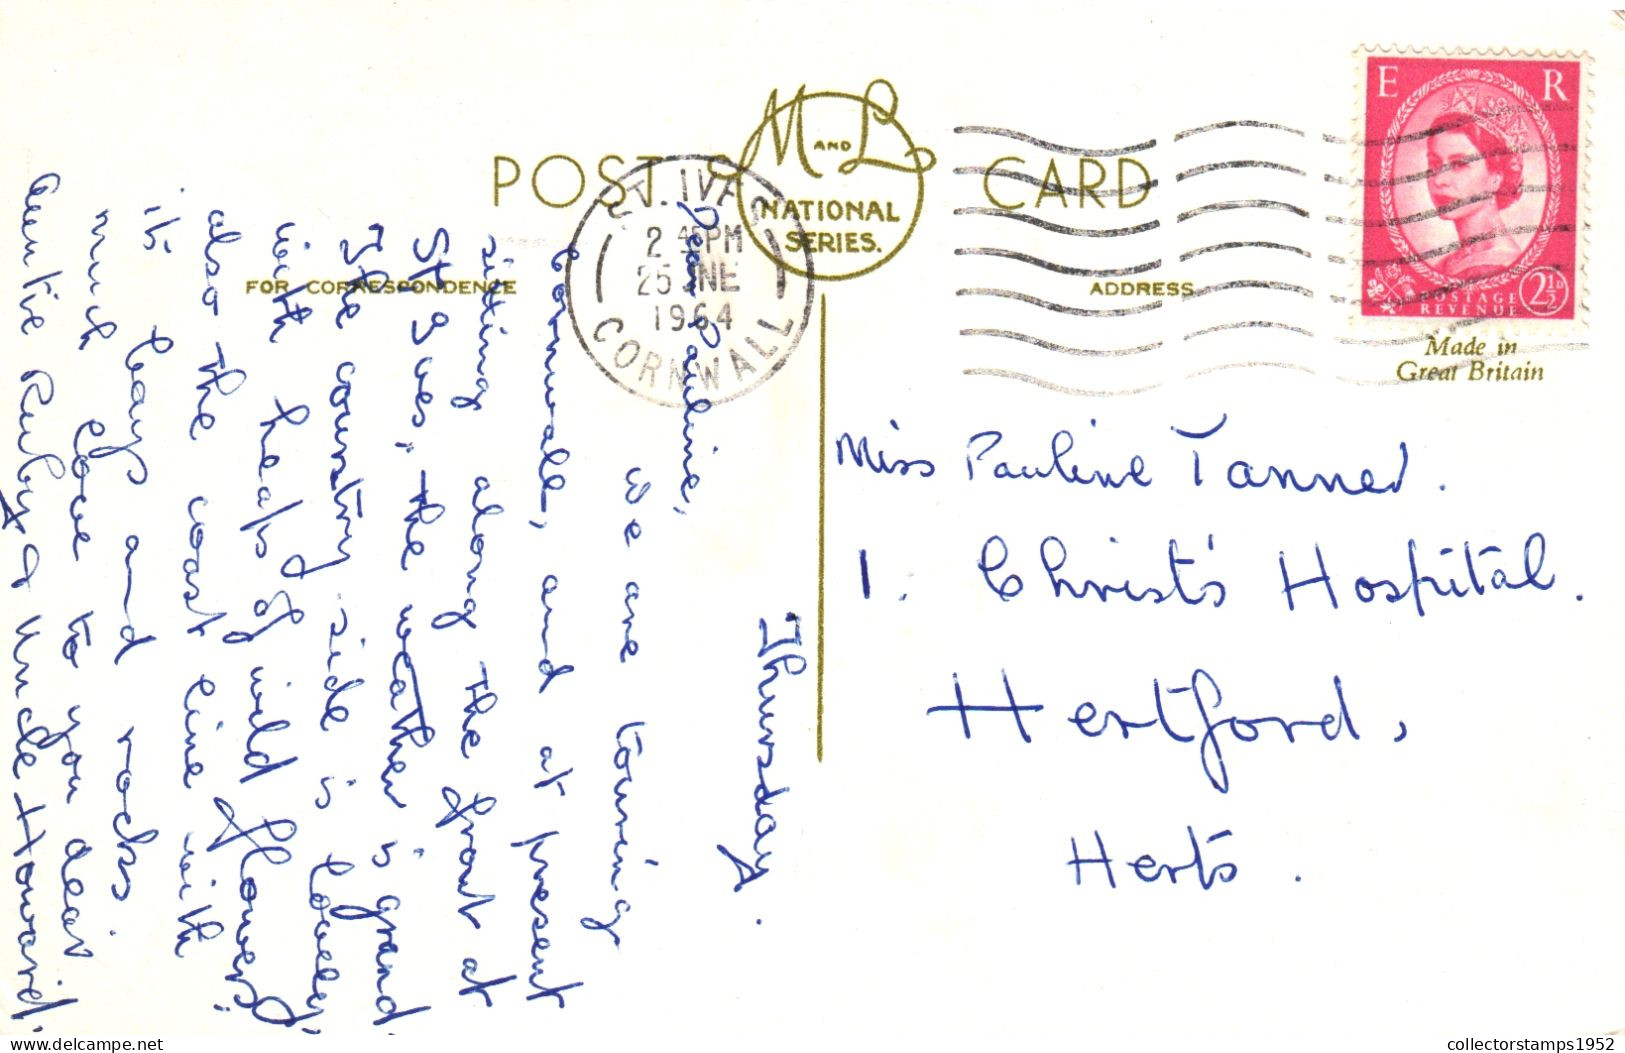 POST CARD
M AND L
NATIONAL
SERIES.
FOR CORRESPONDENCE
ADDRESS
ST. IVES
2 45 PM
25 JNE
1964
CORNWALL
E R
POSTAGE
REVENUE
2½D
Made in
Great Britain
Thursday.
Dear Pauline,
We are touring
Cornwall, and at present
sitting along the front at
St Ives, the weather is grand.
The country side is lovely,
with heaps of wild flowers,
also the coast line with
it bays and rocks
much love to you dear
Auntie Ruby & Uncle Howard.
Miss Pauline Tanner.
1. Christ's Hospital.
Hertford,
Herts.
collectorstamps1952